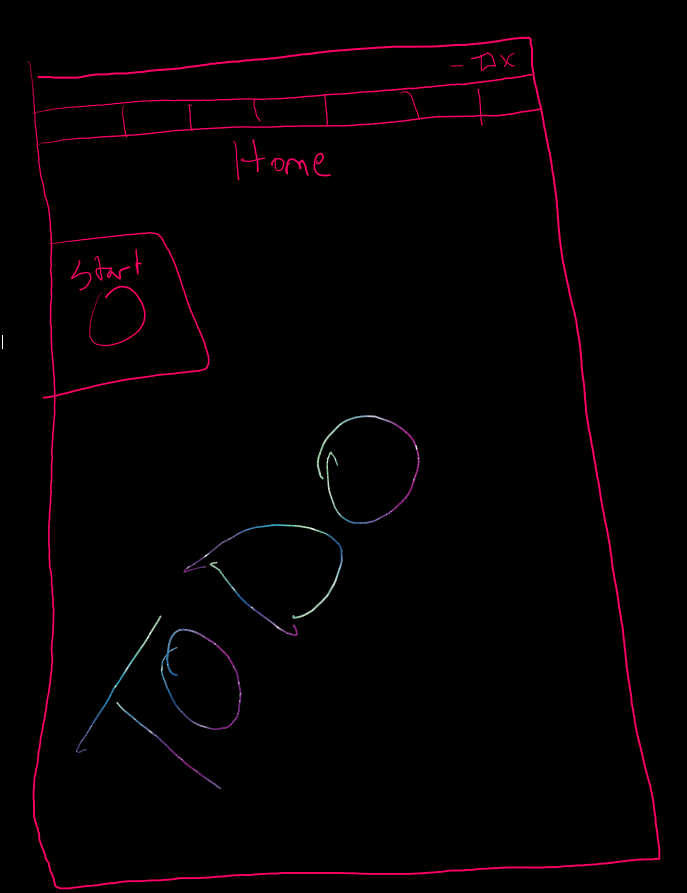 - □ X
Home
Start
TODO